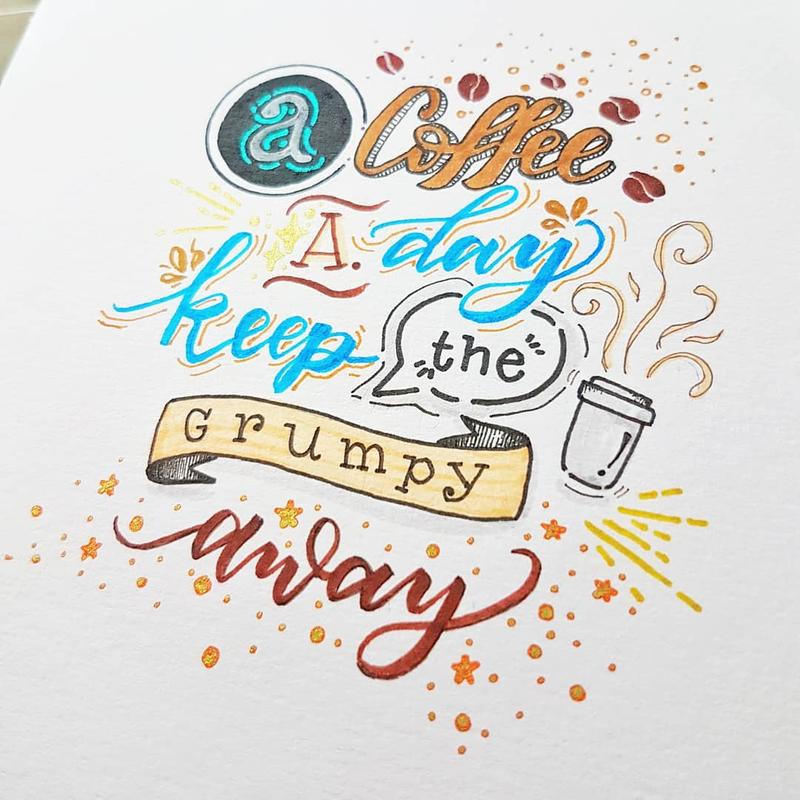 a Coffee
A. day
keep the
Grumpy
away